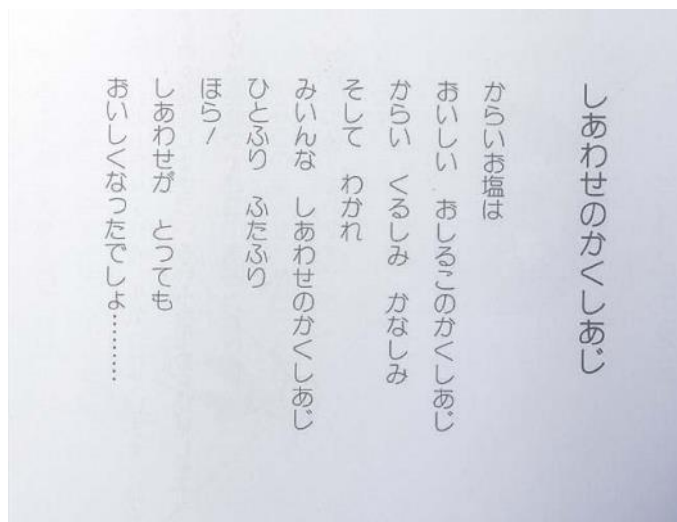 しあわせのかくしあじ
からいお塩は
おいしい　おしるこのかくしあじ
からい　くるしみ　かなしみ
そして　わかれ
みいんな　しあわせのかくしあじ
ひとふり　ふたふり
ほら！
しあわせが　とっても
おいしくなったでしょ………